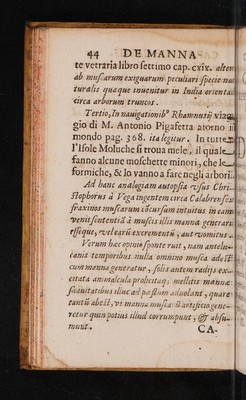 44 DE MANNA
te vetraria libro settimo cap. cxix. altem
ab muscarum exiguarum peculiari specie na
turalis quaque inuenitur in India orientali
circa arborum truncos.
Tertio, In nauigationibº Rhamnutij viag
gio di M. Antonio Pigafetta atorno il
mondo pag. 368. ita legitur. In tutte
l'Isole Moluche si troua mele, il quale
fanno alcune moschette minori, che le
formiche, & lo vanno a fare negli arbori.
Ad hanc analogiam autopsia vsus Chri
stophorus à Vega ingentem circa Calabrensẽs
fraxinos muscarum cõcursum intuitus in eam
venit sententiã à muscis illis manna generari
esseque, vel earũ excrementũ, aut vomitus.
Verum hæc opinio sponte ruit, nam antelu-
canis temporibus nulla omnino musca adest
cum manna generatur, solis autem radijs ex-
citata animalcula prolicitaq; mellitis mannæ
suauitatibus illuc ad pastum aduolant, quare
tantũ abest, vt manna musca℞ artificio gene-
retur quin potius illud corrumpunt, & absu-
munt.
CA-